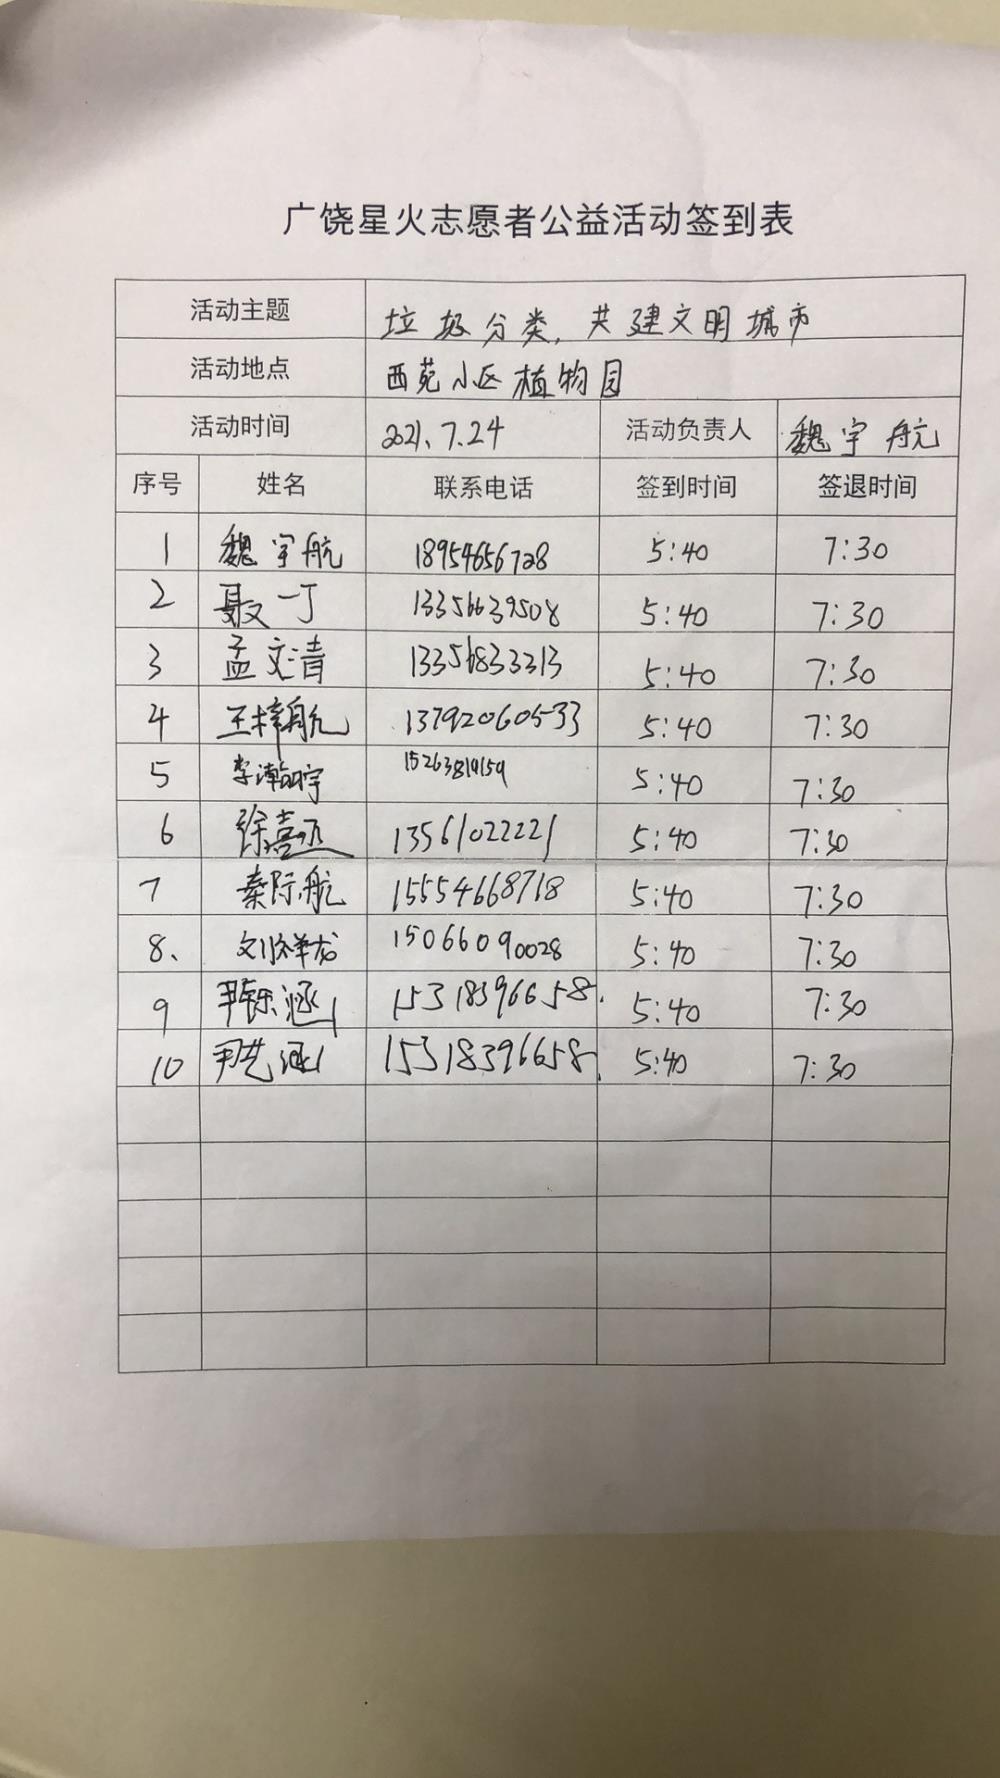 广饶星火志愿者公益活动签到表
活动主题 垃圾分类,共建文明城市
活动地点 西苑小区植物园
活动时间 2021.7.24 活动负责人 魏宇航
序号 姓名 联系电话 签到时间 签退时间
1 魏宇航 18954656728 5:40 7:30
2 聂一丁 13356639508 5:40 7:30
3 孟文清 13356833313 5:40 7:30
4 王梓航 13792060533 5:40 7:30
5 李瀚宇 15263819159 5:40 7:30
6 徐熹丞 13561022221 5:40 7:30
7 秦际航 15554668718 5:40 7:30
8、 刘祥龙 15066090028 5:40 7:30
9 尹铄涵 15318396658. 5:40 7:30
10 尹艺涵 15318396658. 5:40 7:30